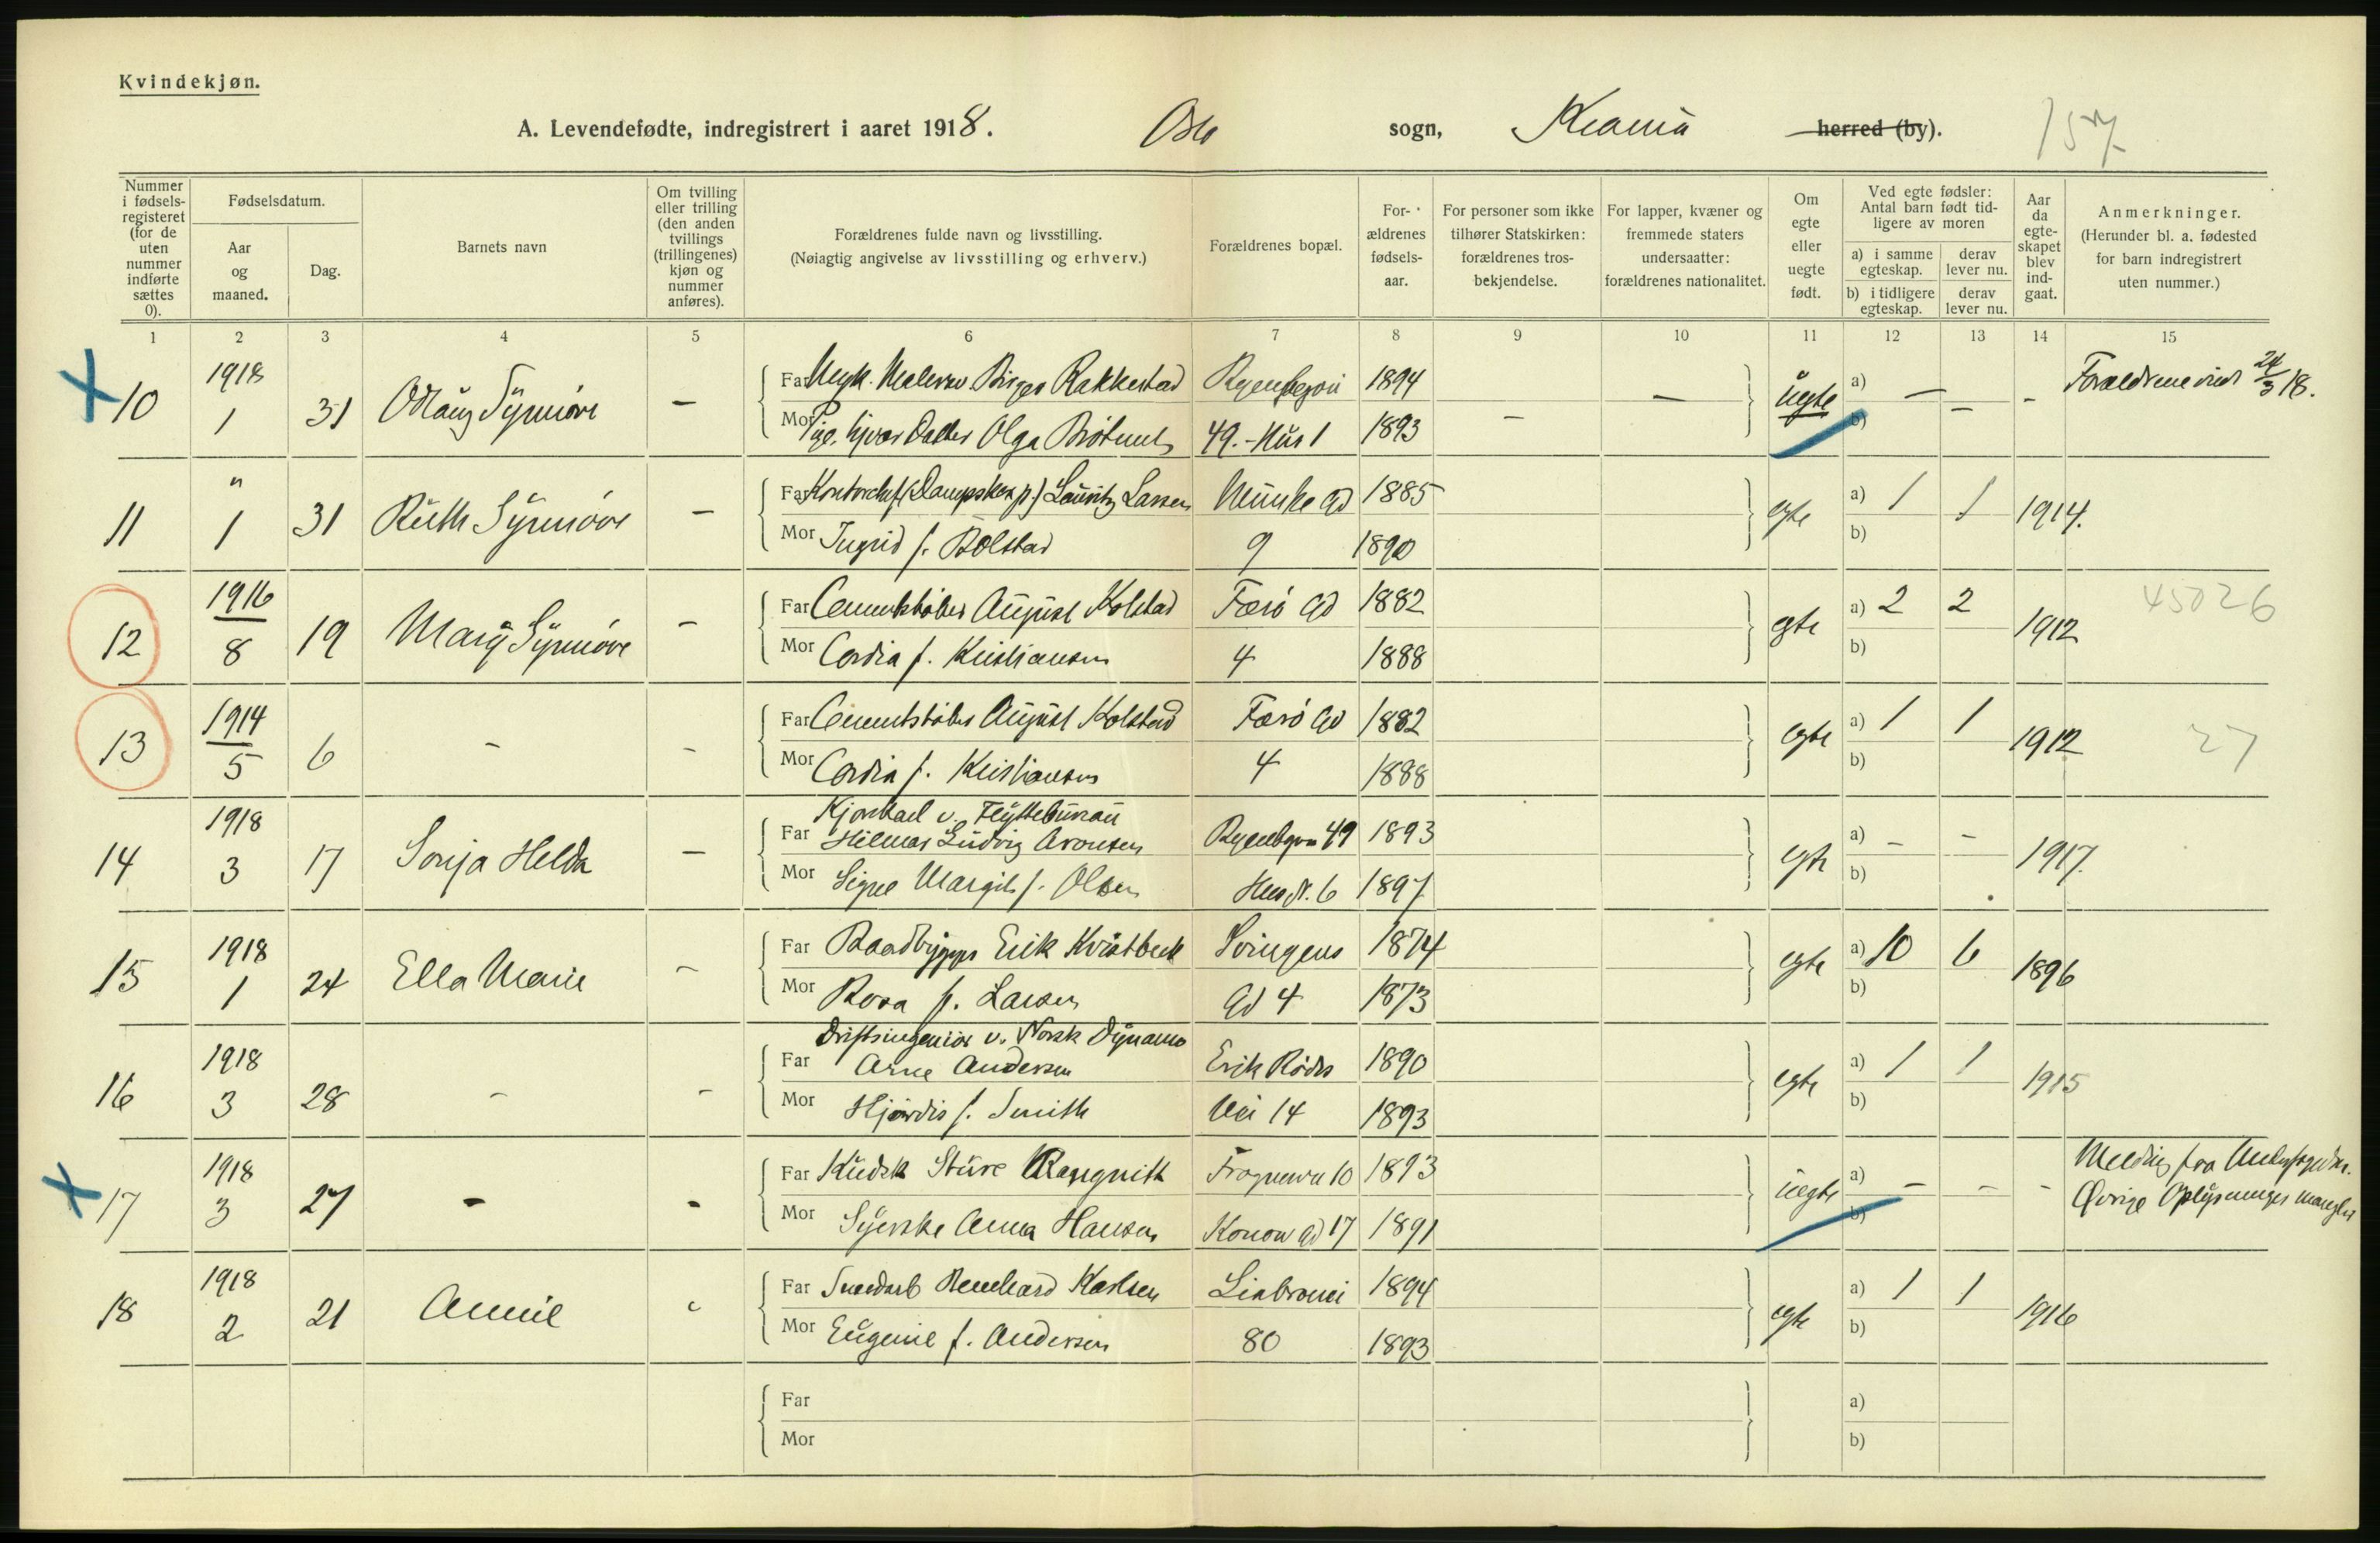 Kvindekjøn.
A. Levendefødte, indregistrert i aaret 1918. Oslo sogn, Kr.ania herred (by). 157
Nummer i fødselsregisteret (for de uten nummer indførte sættes 0).
Fødselsdatum.
Aar og maaned.
Dag.
Barnets navn
Om tvilling eller trilling (den anden tvillings (trillingenes) kjøn og nummer anføres).
Forældrenes fulde navn og livsstilling.
(Nøiagtig angivelse av livsstilling og erhverv.)
Forældrenes bopæl.
Forældrenes fødselsaar.
For personer som ikke tilhører Statskirken: forældrenes trosbekjendelse.
For lapper, kvæner og fremmede staters undersaatter: forældrenes nationalitet.
Om egte eller uegte født.
Ved egte fødsler: Antal barn født tidligere av moren
a) i samme egteskap. derav lever nu.
b) i tidligere egteskap. derav lever nu.
Aar da egteskapet blev indgaat.
Anmerkninger.
(Herunder bl. a. fødested for barn indregistrert uten nummer.)
1 2 3 4 5 6 7 8 9 10 11 12 13 14 15
10 1918 1 31 Oslaug Synnöve –
Far Ungk. Malersv. Birger Rakkestad Ryenbergvei 1894
Mor Pige, hjv. Datter Olga 49. - Hus 1 1893 – –
uegte a) – – – b)
Forældrene viet 24/3 18.
11 " 1 31 Ruth Synnöve –
Far Kontorchef (DampskKomp.) Lauritz Larsen Munke Gd 1885
Mor Ingrid f. Bolstad 9 1890
egte a) 1 1 1914. b)
12 1916 8 19 Mary Synnöve –
Far Cementstöber August Kolstad Færö Gd 1882
Mor Cordia f. Kristiansen 4 1888
egte a) 2 2 1912 b)
45026
13 1914 5 6 – –
Far Cementstöber August Kolstad Færö Gd 1882
Mor Cordia f. Kristiansen 4 1888
egte a) 1 1 1912 b)
27
14 1918 3 17 Sonja Helda –
Kjörekarl v. Flyttebureau
Far Hilmar Ludvig Aronsen Ryenbgvn 49 1893
Mor Signe Margit f. Olsen Hus N. 6 1897
egte a) – – 1917. b)
15 1918 1 24 Ella Marie –
Far Baadbygger Erik Kvistbek Svingens 1874
Mor Rosa f. Larsen Gd 4 1873
egte a) 10 6 1896 b)
16 1918 3 28 – –
Driftsingeniör v. Norsk Dynamo
Far Arne Andersen Erik Röds 1890
Mor Hjördis f. Smith Vei 14 1893
egte a) 1 1 1915 b)
17 1918 3 27 – –
Far Kudsk Sture Frognervn 10 1893
Mor Syerske Anna Hansen Konow Gd 17 1891
uegte a) – – – b)
Melding fra
Övrige Oplysninger mangler
18 1918 2 21 Annie
Far Reinhard Karlsen Liabrovei 1894
Mor Eugenie f. Andersen 80 1893
egte a) 1 1 1916 b)
Far a)
Mor b)